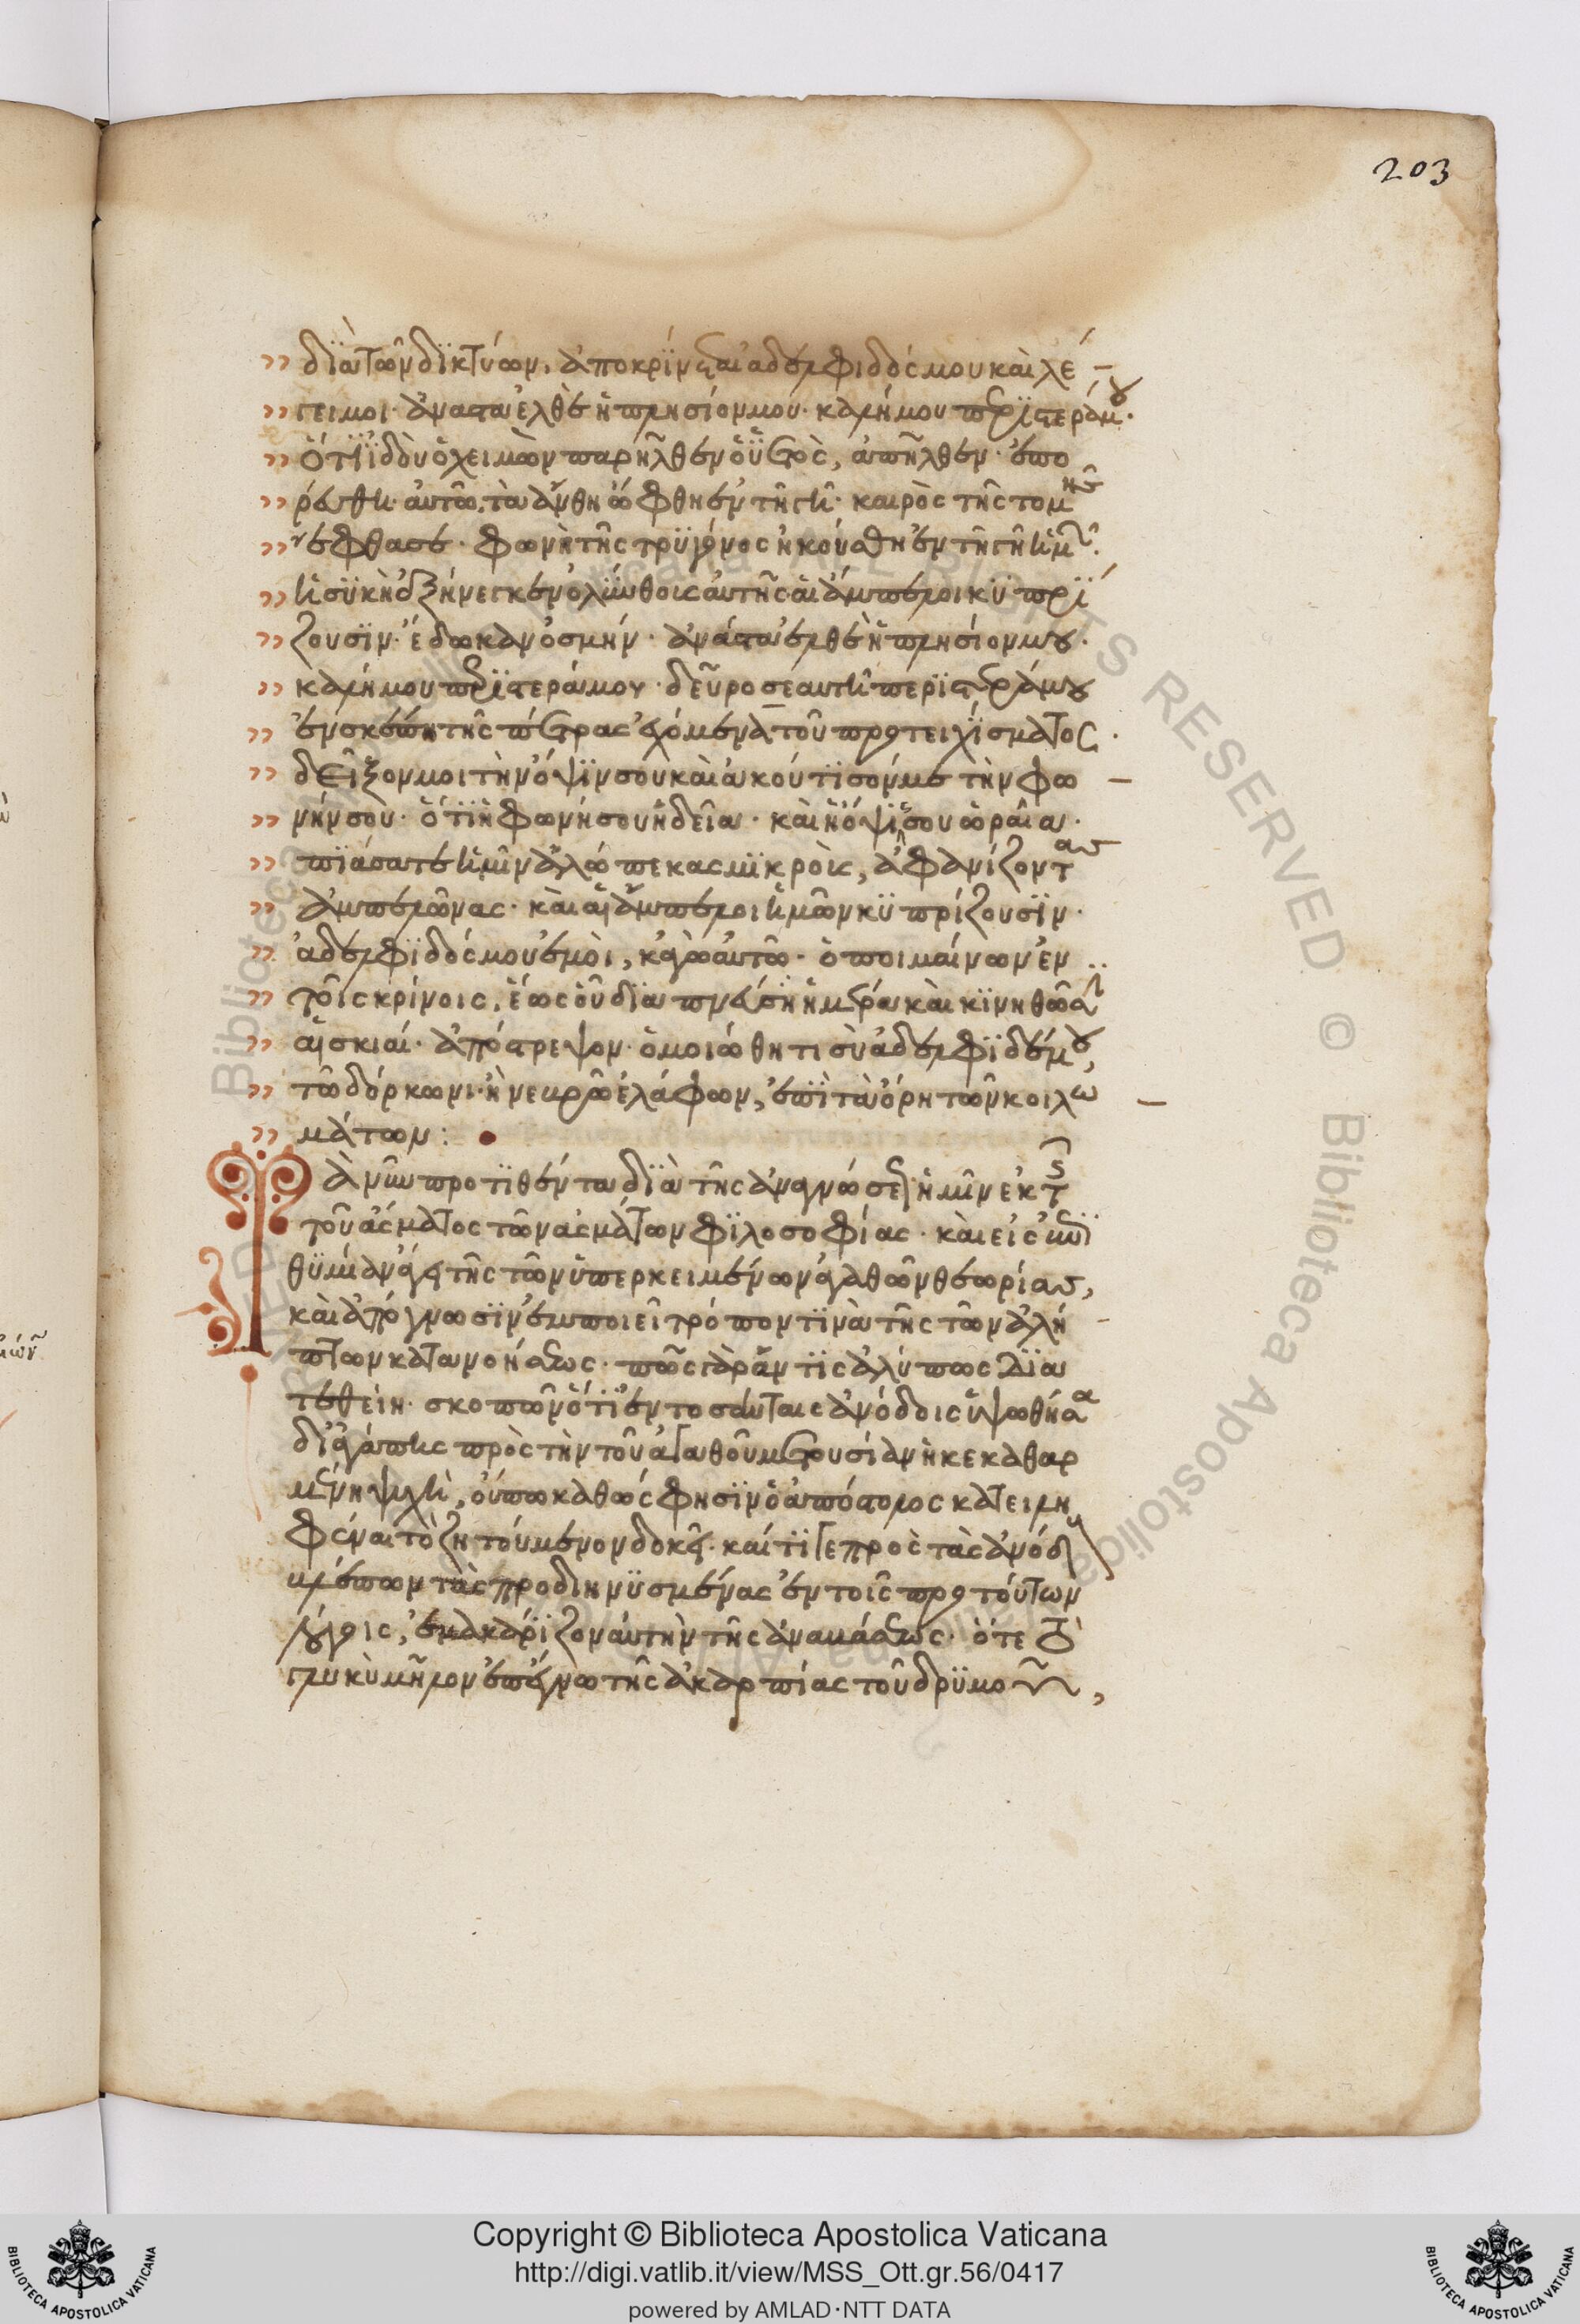 203
διὰ τῶν δικτύων, ἀποκρίνεται ἀδελφιδός μου καὶ λέ
γει μοι· ἀνάστα ἐλθὲ ἡ πλησίον μου· καλή μου περιστερά μου·
ὅτι ἰδοὺ ὁ χειμὼν παρῆλθεν ὁ ὑετὸς, ἀπῆλθεν· ἐπο
ρεύθη ἑαυτῶ. τὰ ἄνθη ὤφθη ἐν τῆ γῆ· καιρὸς τῆς τομῆς
ἔφθασε· φωνὴ τῆς τρυγόνος ἠκούσθη ἐν τῆ γῆ ἡμῶν·
ἡ συκὴ ἐξήνεγκεν ὀλύνθους αὐτῆς αἱ ἄμπελοι κυπρί
ζουσιν· ἔδωκαν ὀσμήν· ἀνάστα ἐλθὲ ἡ πλησίον μου·
καλή μου περιστερά μου· δεῦρο σεαυτῆ περιστερά μου
ἐν σκέπη τῆς πέτρας ἐχόμενα τοῦ προτειχίσματος·
δεῖξον μοι τὴν ὄψιν σου καὶ ἀκούτισόν με τὴν φω
νήν σου· ὅτι ἡ φωνή σου ἡδεῖα· καὶ ἡ ὄψις σου ὡραία·
πιάσατε ἡμῖν ἀλώπεκας μικροὺς, ἀφανίζοντας
ἀμπελῶνας· καὶ αἱ ἄμπελοι ἡμῶν κυπρίζουσιν·
ἀδελφιδός μου ἐμοὶ, κἀγὼ αὐτῶ· ὁ ποιμαίνων ἐν
τοῖς κρίνοις, ἕως οὗ διαπνεύση ἡ ἡμέρα καὶ κινηθῶσιν
αἱ σκιαί· ἀπόστρεψον· ὁμοιώθητι σὺ ἀδελφιδέ μου,
τῶ δόρκωνι· ἢ νεβρῶ ἐλάφων, ἐπὶ τὰ ὄρη τῶν κοιλω
μάτων:
Τὰ νῦν προτιθέντα διὰ τῆς ἀναγνώσεως ἡμῖν ἐκ τῆς
τοῦ ἄσματος τῶν ἀσμάτων φιλοσοφίας· καὶ εἰς ἐπι
θυμίαν ἄγει τῆς τῶν ὑπερκειμένων ἀγαθῶν θεωρίας,
καὶ ἀπόγνωσιν ἐμποιεῖ τρόπον τινὰ τῆς τῶν ἀλή
πτων κατανοήσεως· πῶς γὰρ ἄν τις ἀλύπως δια
τεθείη· σκοπῶν ὅτι ἐν τοσαύταις ἀνόδοις ὑψωθῆσα
δι ἀγάπης πρὸς τὴν τοῦ ἀγαθοῦ μετουσίαν ἡ κεκαθαρ
μένη ψυχὴ, οὔπω καθώς φησιν ὁ ἀπόστολος κατειλη
φέναι τὸ ζητούμενον δοκεῖ· καίτιγε πρὸς τὰς ἀνόδους
βλέπων τὰς προδιηνυσμένας ἐν τοῖς πρὸ τούτων
λόγοις, ἐμακάριζον αὐτὴν τῆς ἀναβάσεως· ὅτε τὸ
γλυκὺ μῆλον ἐπέγνω τῆς ἀκαρπίας τοῦ δρυμοῦ,
Copyright © Biblioteca Apostolica Vaticana
http://digi.vatlib.it/view/MSS_Ott.gr.56/0417
powered by AMLAD·NTT DATA